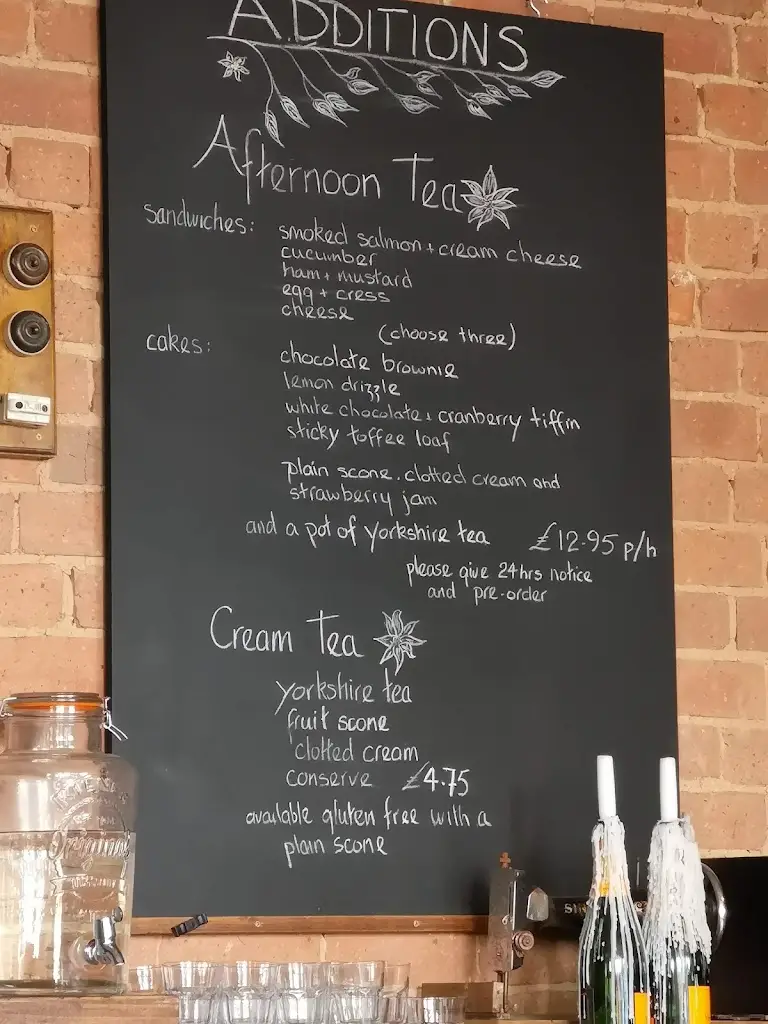 ADDITIONS
Afternoon Tea
sandwiches: smoked salmon + cream cheese
cucumber
ham + mustard
egg + cress
cheese
(choose three)
cakes: chocolate brownie
lemon drizzle
white chocolate + cranberry tiffin
sticky toffee loaf
plain scone. clotted cream and
strawberry jam
and a pot of yorkshire tea £12.95 p/h
please give 24hrs notice
and pre-order
Cream Tea
yorkshire tea
fruit scone
clotted cream
conserve £4.75
available gluten free with a
plain scone
Original